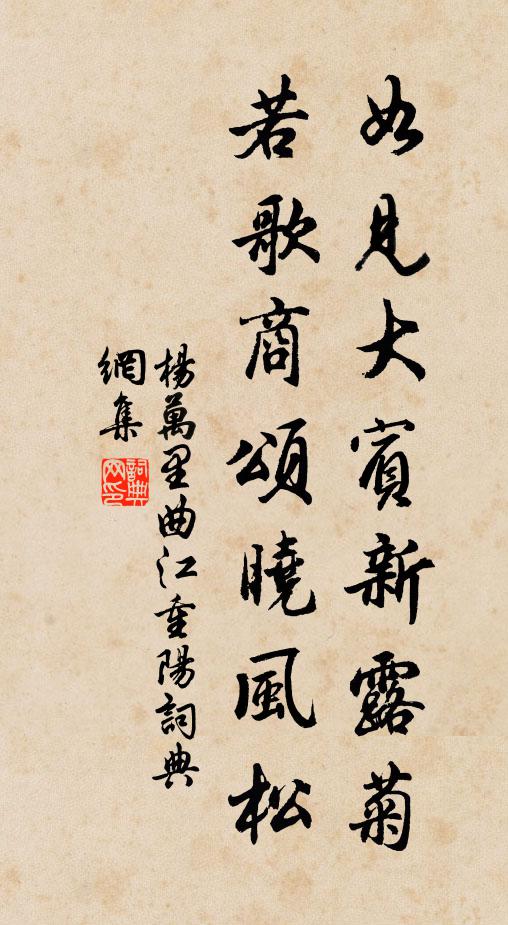 如見大賓新露菊
若歌商頌曉風松
楊萬里曲江重陽詞典
網集
詞典网印